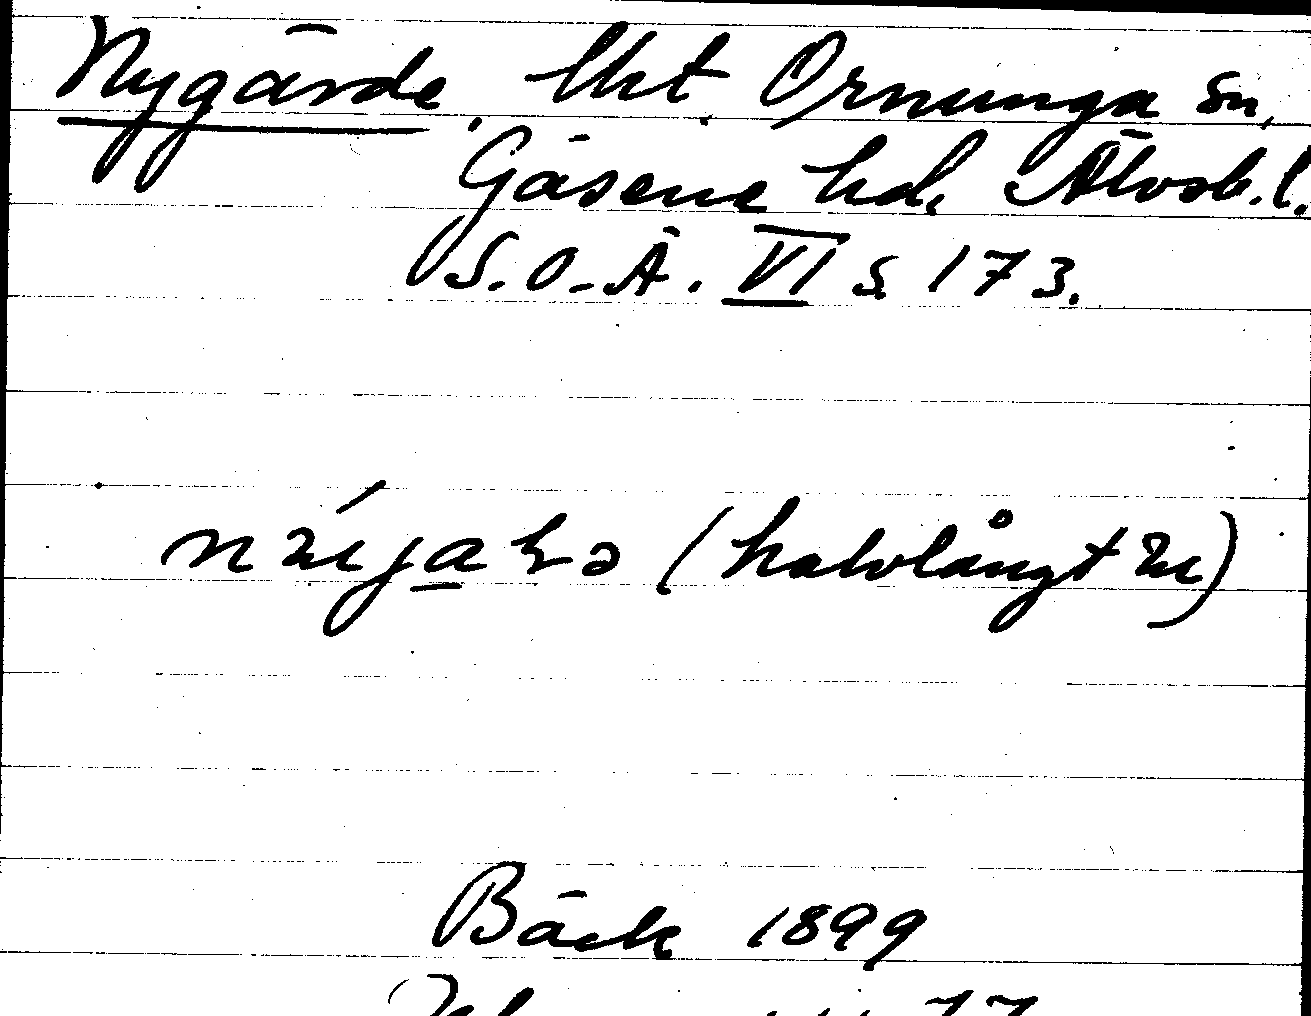 Nygärde. Uht Ornunga sn,
Gäsene hd. Älvsb. l.
S.O.Ä. VI s 173.
(halvlångt
Bäck 1899